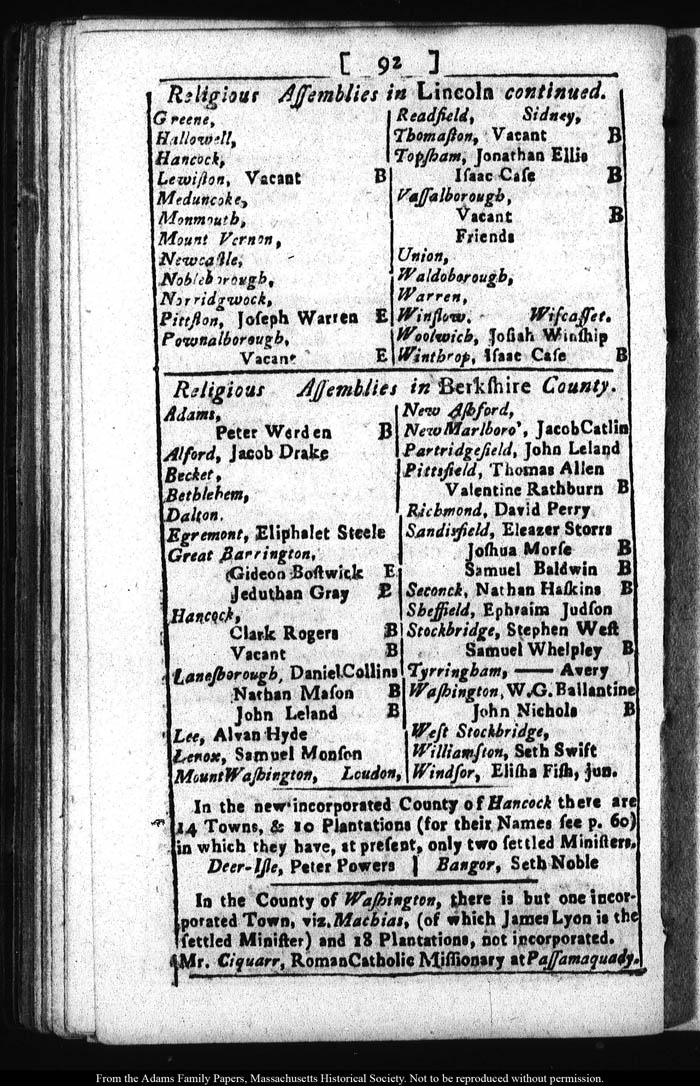 [ 92 ]
Religious Aſſemblies in Lincoln continued.
Greene,
Hallowell,
Hancock,
Lewiſton, Vacant B
Meduncoke,
Monmouth,
Mount Vernon,
Newcaſtle,
Nobleborough,
Norridgwock,
Pittſton, Joſeph Warren E
Pownalborough,
Vacant E
Readfield, Sidney,
Thomaſton, Vacant B
Topſham, Jonathan Ellis
Iſaac Caſe B
Vaſſalborough,
Vacant B
Friends
Union,
Waldoborough,
Warren,
Winſlow. Wiſcaſſet.
Woolwich, Joſiah Winſhip
Winthrop, Iſaac Caſe B
Religious Aſſemblies in Berkſhire County.
Adams,
Peter Werden B
Alford, Jacob Drake
Becket,
Bethlehem,
Dalton.
Egremont, Eliphalet Steele
Great Barrington,
Gideon Boſtwick E
Jeduthan Gray E
Hancock,
Clark Rogers B
Vacant B
Laneſborough, Daniel Collins
Nathan Maſon B
John Leland B
Lee, Alvan Hyde
Lenox, Samuel Monſon
Mount Waſhington, Loudon,
New Aſhford,
New Marlboro', Jacob Catlin
Partridgefield, John Leland
Pittsfield, Thomas Allen
Valentine Rathburn B
Richmond, David Perry
Sandisfield, Eleazer Storrs
Joſhua Morſe B
Samuel Baldwin B
Seconck, Nathan Haſkins B
Sheffield, Ephraim Judſon
Stockbridge, Stephen Weſt
Samuel Whelpley B
Tyrringham, —— Avery
Waſhington, W.G. Ballantine
John Nichols B
Weſt Stockbridge,
Williamſton, Seth Swift
Windſor, Eliſha Fiſh, jun.
In the new incorporated County of Hancock there are
14 Towns, & 10 Plantations (for their Names ſee p. 60)
in which they have, at preſent, only two ſettled Miniſters.
Deer-Iſle, Peter Powers | Bangor, Seth Noble
In the County of Waſhington, there is but one incor-
porated Town, viz. Machias, (of which James Lyon is the
ſettled Miniſter) and 18 Plantations, not incorporated.
Mr. Ciquarr, Roman Catholic Miſſionary at Paſſamaquady.
From the Adams Family Papers, Massachusetts Historical Society. Not to be reproduced without permission.